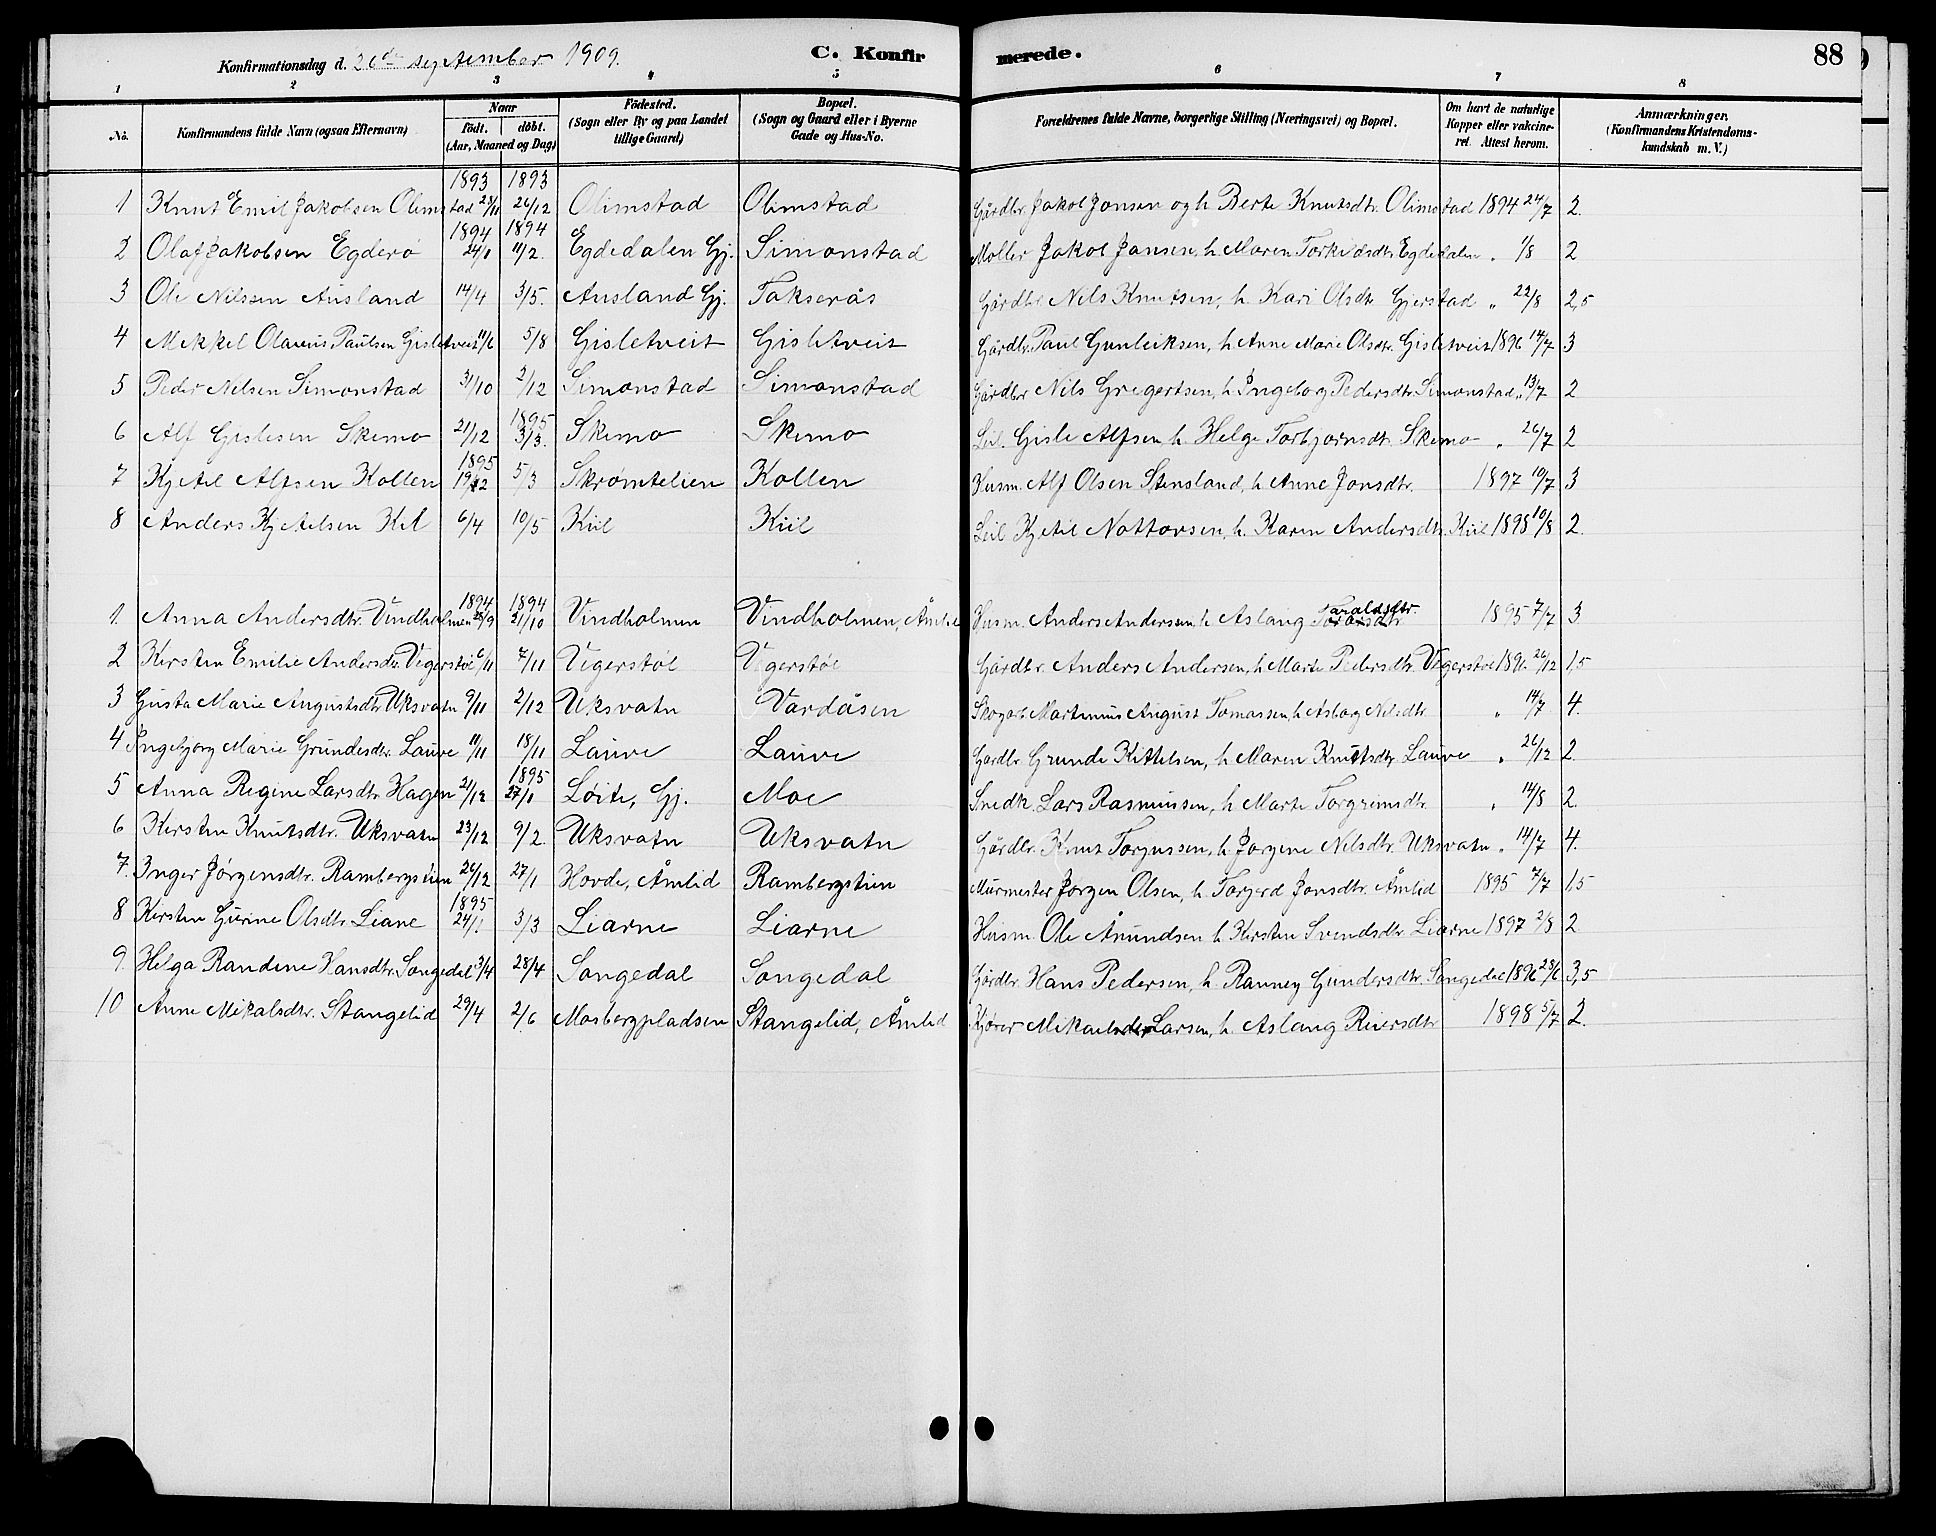 Konfirmationsdag d. 26de september 1909. C. Konfirmerede. 88
1 2 3 4 5 6 7 8
No. Konfirmandens fulde Navn (ogsaa Efternavn) Naar født. døbt. (Aar, Maaned og Dag) Födested. (Sogn eller By og paa Landet tillige Gaard) Bopæl. (Sogn og Gaard eller i Byerne Gade og Hus-No. Forældrenes fulde Navne, borgerlige Stilling (Næringsvei) og Bopæl. Om havt de naturlige Kopper eller vakcineret. Attest herom. Anmærkninger. (Konfirmandens Kristendomskundskab m. V.)
1893 1893
1 Knut Emil Jakobsen Olimstad 28/11 26/12 Olimstad Olimstad Gårdbr. Jakob Jonsen og h. Berte Knutsdtr. Olimstad 1894 24/7 2.
1894 1894
2 Olaf Jakobsen Egderø 24/1 11/2. Egdedalen Gj. Simonstad Møller Jakob Jansen, h. Maren Torkildsdtr. Egdedalen „ 1/8 2
3 Ole Nilssen Ausland 14/4 3/5. Ausland Gj. Takserås Gårdbr. Nils Knutsen, h. Kari Olsdtr. Gjerstad „ 22/8 2,5
4 Mekkel Olavius Paulsen Gisletveit 11/6 5/8 Gisletveit Gisletveit Gårdbr. Paul Gunleiksen, h. Anne Marie Olsdtr. Gisletveit 1896 14/7 3
5 Peder Nilsen Simonstad 31/10 2/12 Simonstad Simonstad Gårdbr. Nils Gregertsen, h. Ingeborg Pedersdtr. Simonstad „ 13/7 2
1895
6 Alf Gislesen Skemo 21/12 3/3. Skemo Skemo Leil. Gisle Alfsen h. Helge Torbjørnsdtr. Skemo „ 26/7 2
1895
7 Kjetil Alfsen Kollen 19/2 5/3 Skrømtelien Kollen Husm. Alf Olsen Stensland, h. Anne Jonsdtr. 1897 10/7 3
8 Anders Kjetilsen Kil 6/4 10/5 Kiil Kiil Leil. Kjetil Nottovsen, h. Karen Andersdtr. Kiil 1898 10/8 2.
1894 1894
1 Anna Andersdtr. Vindholmen 28/9 21/10 Vindholmen Vindholmen, Åmlid Husm. Anders Anderssen, h. Aslaug Taraldsdtr. 1895 7/7 3
2 Kirsten Emilie Andersdtr. Vegerstøl 6/11 7/11 Vegerstøl Vegerstøl Gårdbr. Anders Andersen, h. Marte Pedersdtr. Vegerstøl 1896 26/12 1,5
3 Gusta Marie Augustsdtr. Uksvatn 9/11 2/12 Uksvatn Vardåsen Skogarb. Martinius August Tomassen, h. Asborg Nilsdtr. „ 14/7 4.
4 Ingebjorg Marie Grundesdtr. Lauve 11/11 18/11 Lauve Lauve Gardbr. Grunde Kittelsen, h. Maren Knutsdtr. Lauve „ 26/12 2.
1895
5 Anna Regine Larsdtr. Hagen 21/12 27/1 Løite, Gj. Moe Snedk. Lars Rasmussen, h. Marte Torgrimsdtr. „ 14/8 2.
6 Kirsten Knutsdtr. Uksvatn 23/12 9/2. Uksvatn Uksvatn Gårdbr. Knut Torjussen, h. Jorgine Nilsdtr. Uksvatn „ 14/7 4.
7. Inger Jörgensdtr. Rambergstien 26/12 27/1 Hovde, Åmlid Rambergstien Murmester Jörgen Olsen, h. Torgerd Jonsdtr. Åmlid 1895 7/7 1,5
1895
8 Kirsten Gurine Olsdtr. Liane 24/1 3/3 Liarne Liarne Husm. Ole Ånundsen h. Kirsten Svendsdtr. Liarne 1897 2/8 2
9. Helga Randine Hansdtr. Songedal 3/4 28/4 Songedal Songedal Gårdbr. Hans Pedersen, h. Ranney Gundersdtr. Songedal 1896 28/6 3,5
10 Anne Mikalsdtr. Stangelid 29/4 2/6 Mosbergpladsen Stangelid, Åmlid Kjører Mikael Larsen, h. Aslaug Reiersdtr. 1898 5/7 2.